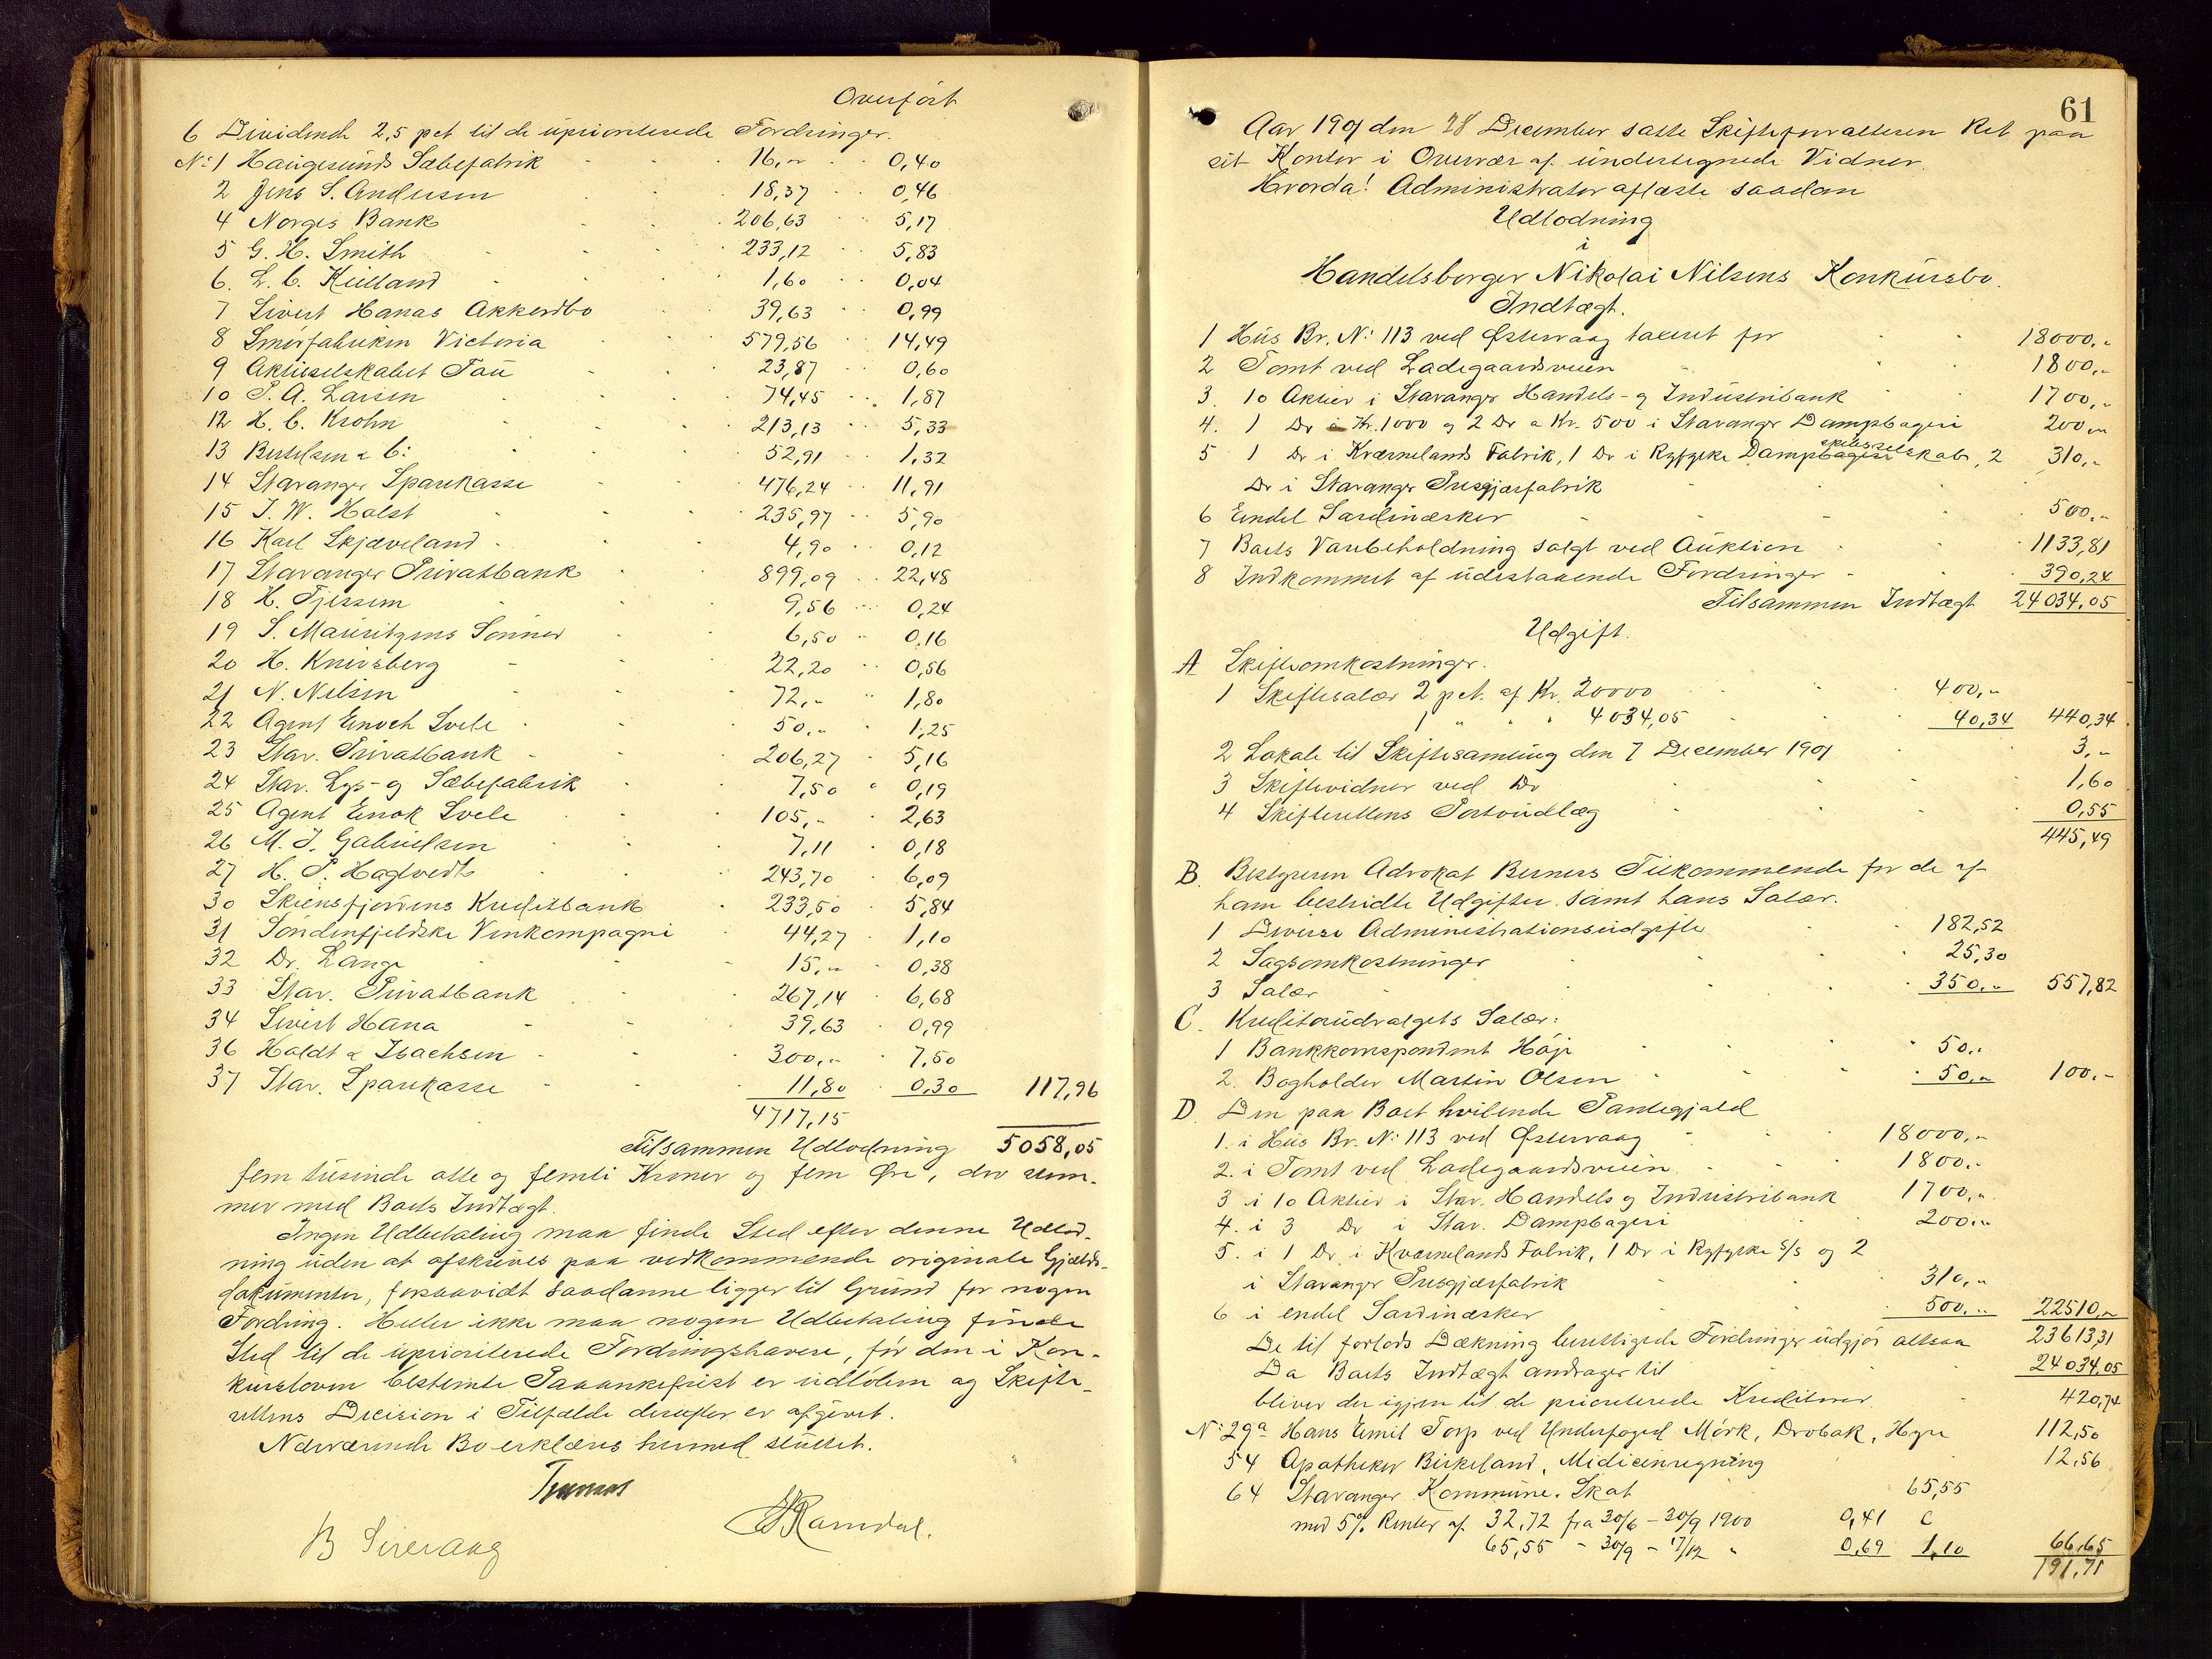 Overført
6 Dividende 2,5 pct til de uprioriterede Fordringer.
No: 1 Haugesunds Sæbefabrik 16,– 0,40
2 Jens S. Andersen 18,37 0,46
4 Norges Bank 206,63 5,17
5 G. H. Smith 233,12 5,83
6. L. C. Kielland 1,60 0,04
7 Sivert Hanas Akkordbo 39,63 0,99
8 Smørfabriken Victoria 579,56 14,49
9 Aktieselskabet Tau 23,87 0,60
10 P. A. Larsen 74,45 1,87
12 H. C. Krohn 213,13 5,33
13 Bertelsen & C: 52,91 1,32
14 Stavanger Sparekasse 476,24 11,91
15 J. W. Holst 235,97 5,90
16 Karl Skjæveland 4,90 0,12
17 Stavanger Privatbank 899,09 22,48
18 H. Tjessem 9,56 0,24
19 S. Mauritzens Sønner 6,50 0,16
20 H. Knivsberg 22,20 0,56
21 N. Nilsen 72,– 1,80
22 Agent Enoch Svele 50,– 1,25
23 Stav. Privatbank 206,27 5,16
24 Stav. Lys- og Sæbefabrik 7,50 0,19
25 Agent Enok Svele 105,– 2,63
26 M. J. Gabrielsen 7,11 0,18
27 H. P. Hagtvedt 243,70 6,09
30 Skiensfjordens Kreditbank 233,50 5,84
31 Søndenfjeldske Vinkompagni 44,27 1,10
32 Dr. Lange 15,– 0,38
33 Stav. Privatbank 267,14 6,68
34 Sivert Hana 39,63 0,99
36 Holdt & Isachsen 300,– 7,50
37 Stav. Sparekasse 11,80 0,30 117,96
4717,15
Tilsammen Udlodning 5058,05
fem tusinde otte og femti Kroner og fem Øre, der stem-
mer med Boets Indtægt.
Ingen Udbetaling maa finde Sted efter denne Udlod-
ning uden at afskrives paa vedkommende originale Gjælds-
dokumenter, forsaavidt saadanne ligger til Grund for nogen
Fordring. Heller ikke maa nogen Udbetaling finde
Sted til de uprioriterede Fordringshavere, før den i Kon-
kursloven bestemte Paaankefrist er udløben og Skifte-
rettens Decision i Tilfælde derefter er afgivet.
Nærværende Bo erklæres hermed sluttet.
B Sirevaag
Ramdal.
61
Aar 1901 den 28 December satte Skifteforvalteren Ret paa
sit Kontor i Overvær af undertegnede Vidner.
Hvorda! Administrator aflæste saadan
Udlodning
i
Handelsborger Nikolai Nilsens Konkursbo.
Indtægt.
1 Hus Br. No: 113 ved Østervaag taxeret for 18000,–
2 Tomt ved Ladegaardsveien 1800,–
3. 10 Aktier i Stavanger Handels- og Industribank 1700,–
4. 1 Do à Kr. 1000 og 2 Do a Kr. 500 i Stavanger Dampbageri 200,–
5 1 Do i Kværnelands Fabrik, 1 Do i Ryfylke Dampskibsselskab, 2 310,–
Do i Stavanger Presgjærfabrik
6 Endel Sardinæsker 500,–
7 Boets Varebeholdning solgt ved Auktion 1133,81
8 Indkommet af udestaaende Fordringer 390,24
Tilsammen Indtægt 24034,05
Udgift.
A Skifteomkostninger.
1 Skiftesalær 2 pct. af Kr. 20000 400,–
1 " " " 4034,05 40,34 440,34
2 Lokale til Skiftesamling den 7 December 1901 3,–
3 Skiftevidner ved Do 1,60
4 Skifterettens Portoudlæg 0,55
445,49
B. Bestyreren Advokat Berners Tilkommende for de af
ham bestridte Udgifter samt hans Salær.
1 Diverse Administrationsudgifter 182,52
2 Sagsomkostninger 25,30
3 Salær 350,– 557,82
C. Kreditorudvalgets Salær:
1 Bankkorrespondent Høje 50,–
2. Bogholder Martin Olsen 50,– 100,–
D. Den paa Boet hvilende Pantegjæld
1. i Hus Br. No: 113 ved Østervaag 18000,–
2. i Tomt ved Ladegaardsveien 1800,–
3 i 10 Aktier i Stav. Handels og Industribank 1700,–
4. i 3 Do i Stav. Dampbageri 200,–
5. i 1 Do i Kværnelands Fabrik, 1 Do i Ryfylke S/S og 2
i Stavanger Presgjærfabrik 310,–
6 i endel Sardinæsker 500,– 22510,–
De til forlods Dækning berettigede Fordringer udgjør altsaa 23613,31
Da Boets Indtægt andrager til 24034,05
bliver der igjen til de prioriterede Kreditorer 420,74
No: 29a Hans Emil Torp ved Underfoged Mørk, Drøbak, Hyre 112,50
54 Apotheker Birkeland, Medicinregning 12,56
64 Stavanger Kommune. Skat 65,55
med 5% Renter af 32,72 fra 30/6 – 30/9 1900 0,41
65,55 – 30/9 – 17/12 " 0,69 1,10 66,65
191,71